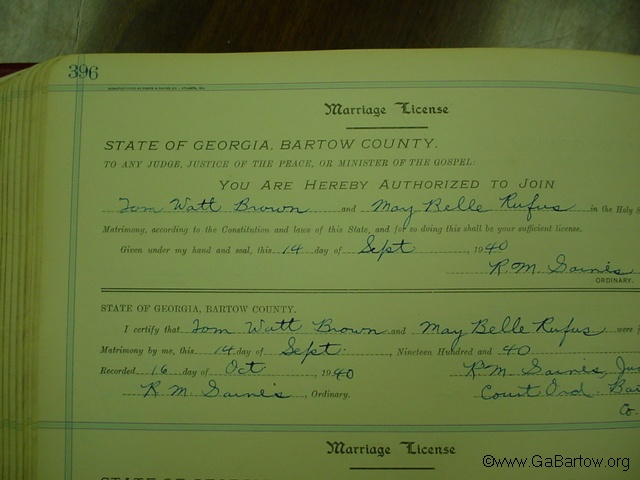 396
Marriage License
STATE OF GEORGIA, BARTOW COUNTY.
TO ANY JUDGE, JUSTICE OF THE PEACE, OR MINISTER OF THE GOSPEL:
YOU ARE HEREBY AUTHORIZED TO JOIN
Tom Watt Brown and May Belle Rufus in the Holy S
Matrimony, according to the Constitution and laws of this State, and for so doing this shall be your sufficient license.
Given under my hand and seal, this 14 day of Sept, 1940
R.M. Gaines
ORDINARY.
STATE OF GEORGIA, BARTOW COUNTY.
I certify that Tom Watt Brown and May Belle Rufus were
Matrimony by me, this 14 day of Sept., Nineteen Hundred and 40
Recorded 16 day of Oct, 1940 R.M. Gaines, Jud
R.M. Gaines, Ordinary. Court Ord. Bar
Co.
Marriage License
©www.GaBartow.org